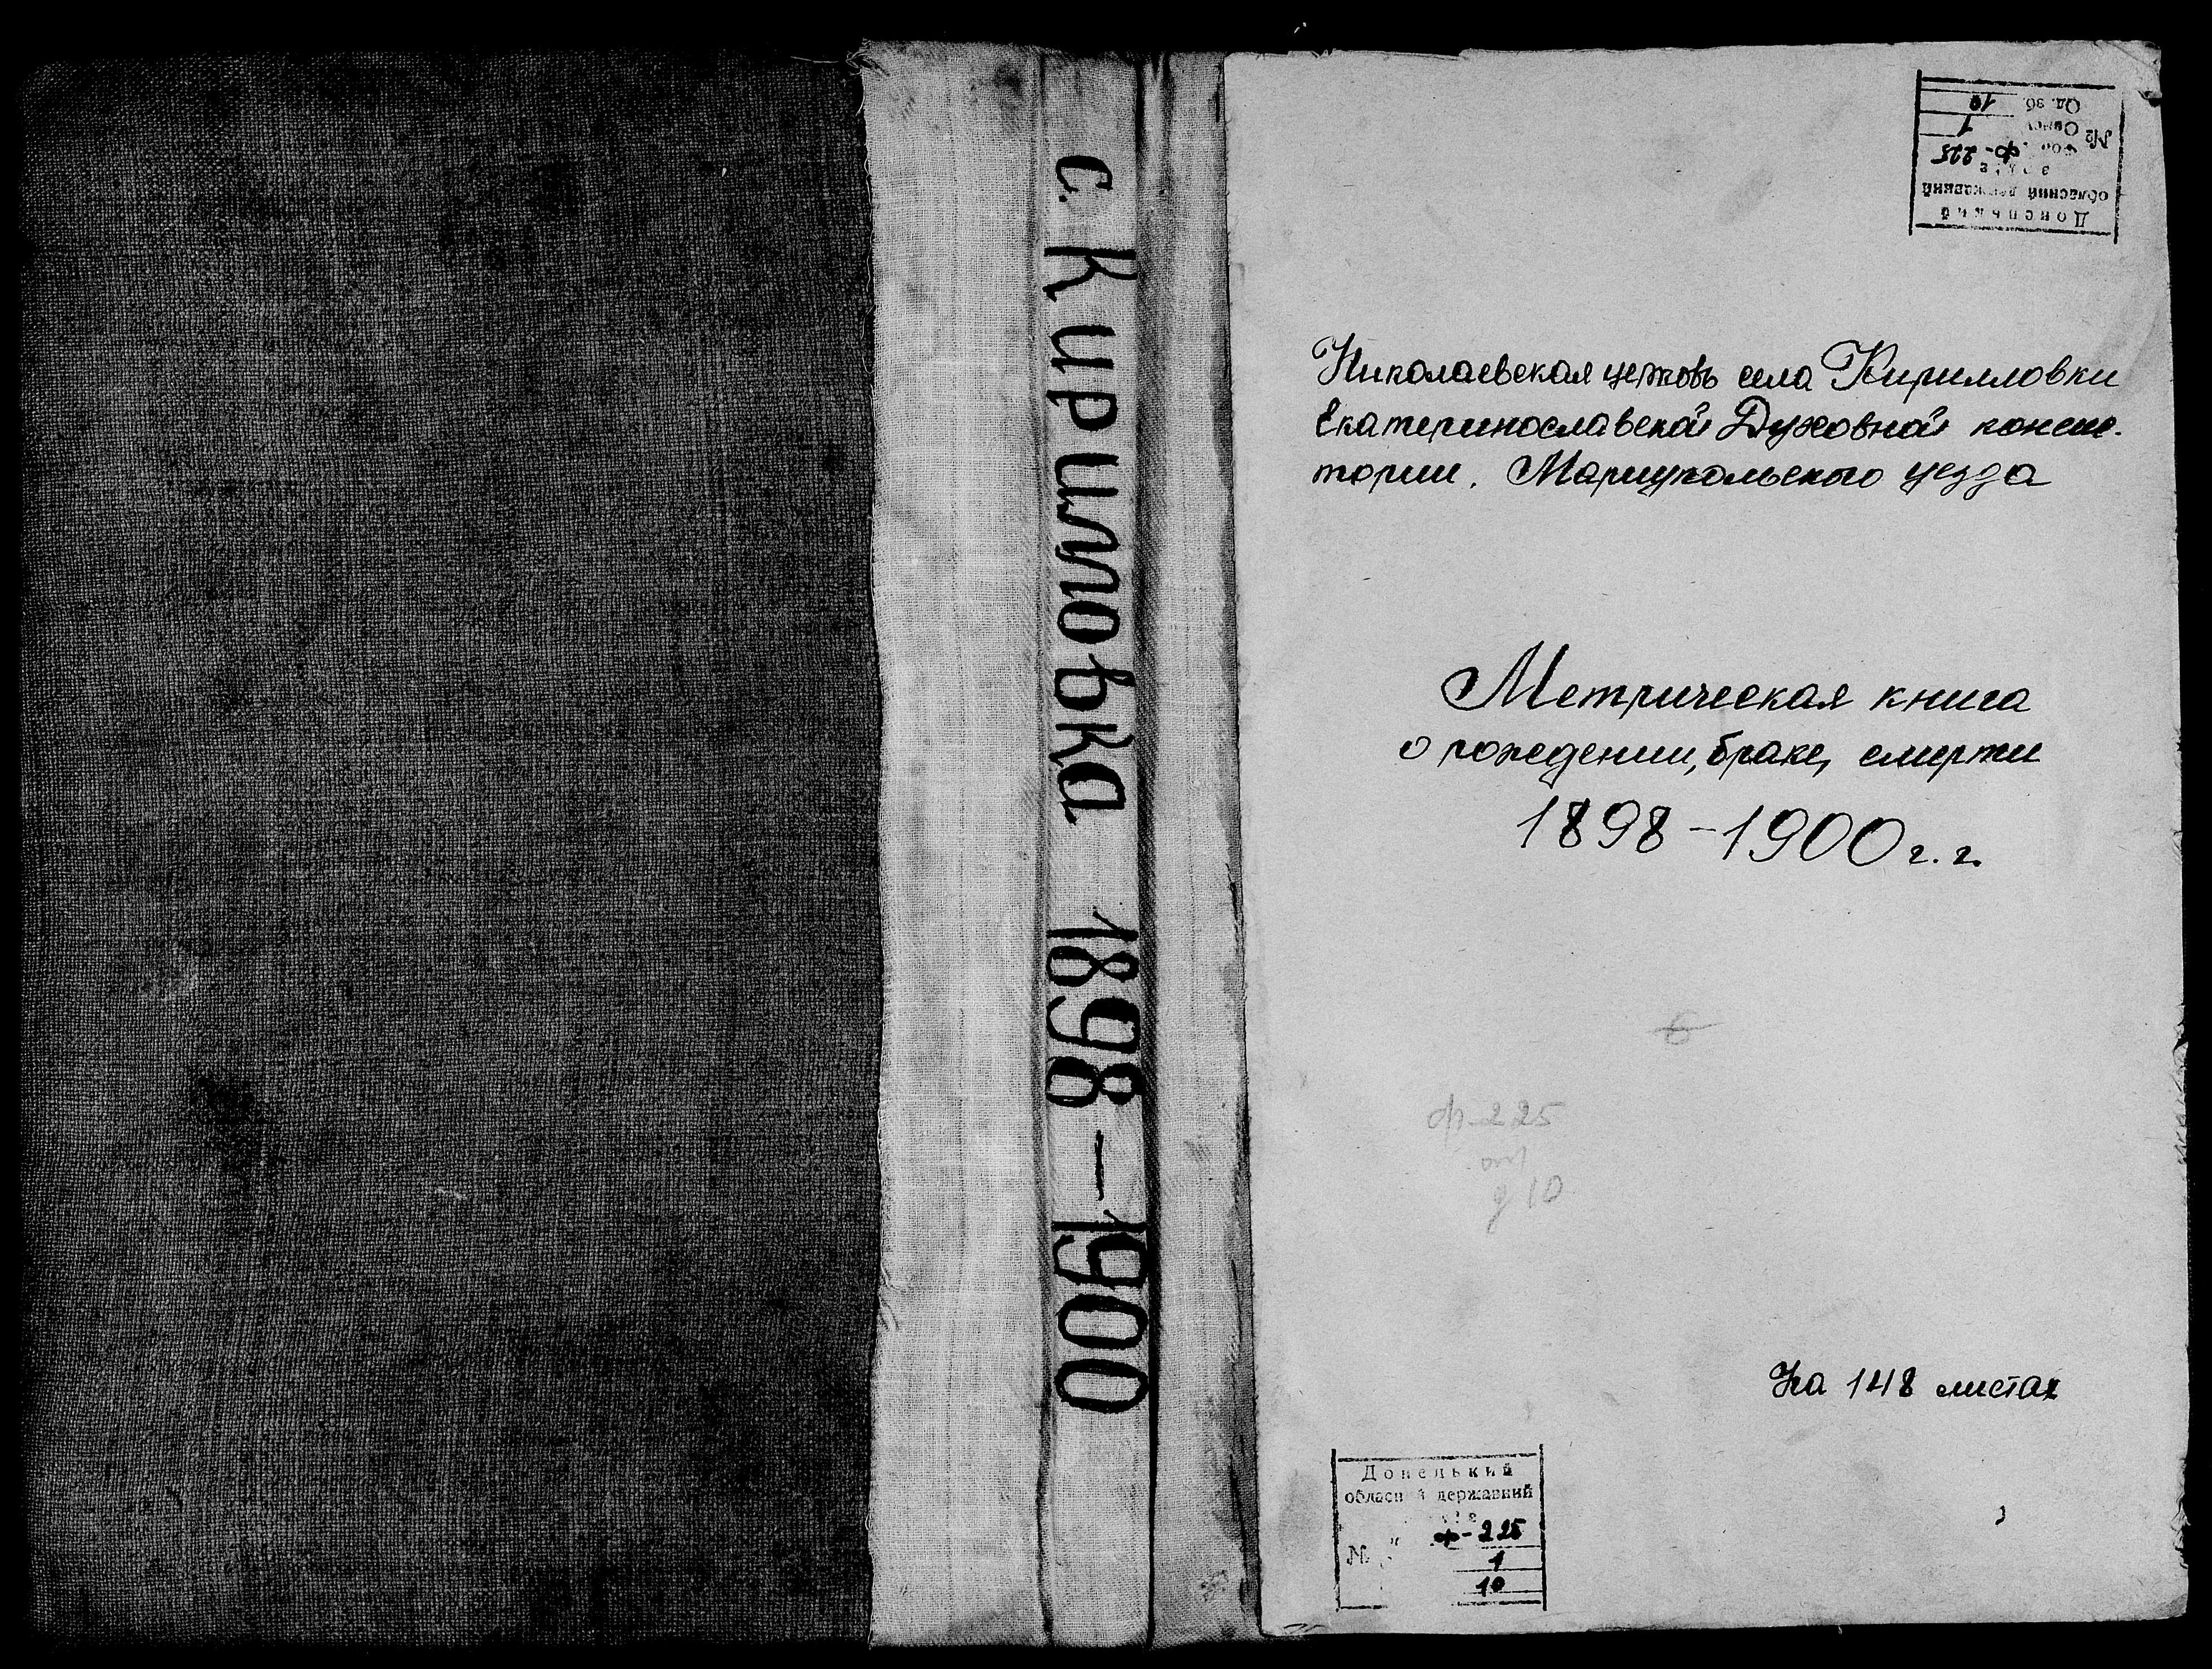 с. Кирилловка 1898-1900
Донецький
обласний державний
ф-225
№ Опису 1
Од. зб. 10
Николаевская церковь села Кирилловки
Екатеринославской Духовной консис-
тории. Мариупольского уезда
Метрическая книга
о рождении, браке, смерти
1898-1900 г.г.
6
ф-225
оп 1
д 10
На 148 листах
Донецький
обласн й державний
ф-225
№ 1
10